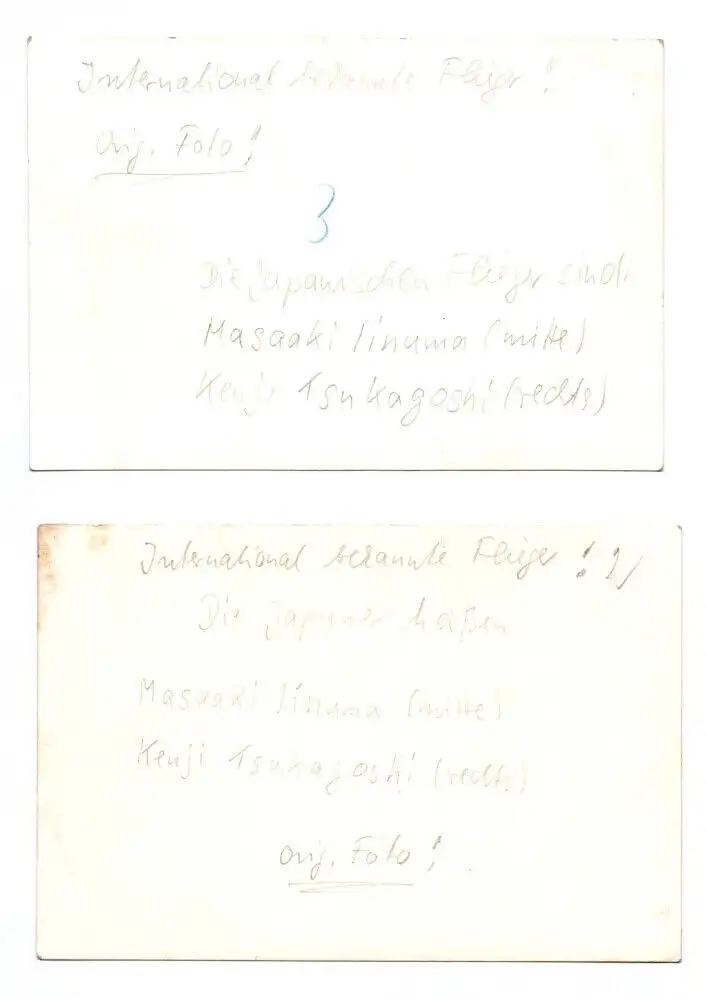 International bekannte Flieger!
Orig. Foto!
3
Die japanischen Flieger sind:
Masaaki Iinuma (mitte)
Kenji Tsukagoshi (rechts)
International bekannte Flieger!
Die Japaner heißen
Masaaki Iinuma (mitte)
Kenji Tsukagoshi (rechts)
Orig. Foto!